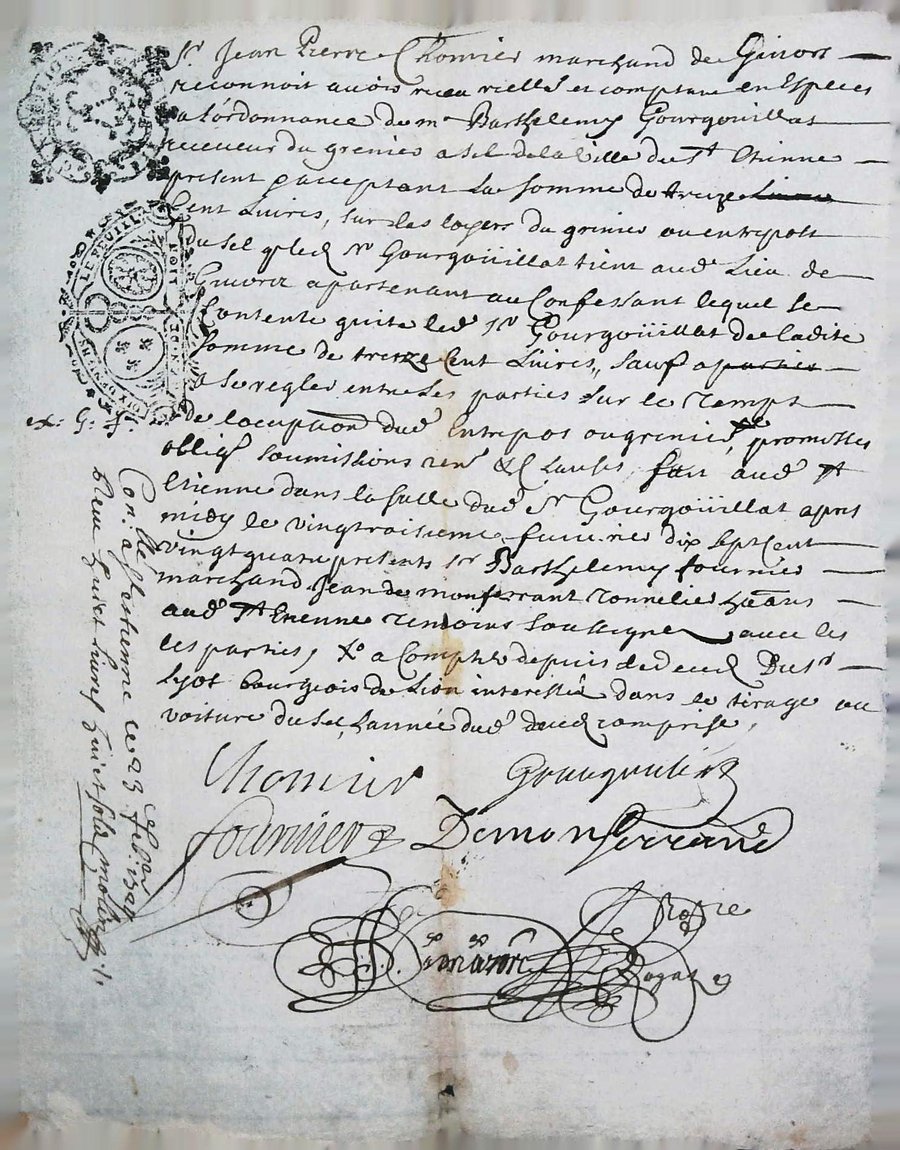 Sr Jean Pierre Chomier marchand de Givors
reconnoit avoir receu réelle et comptant en Especes
a l'ordonnance de mr Barthelemy Gourgoüillat
receveur du grenier a sel de la ville de St Etienne
present et acceptant La somme de treize
Cent Livres, sur les loyers du grenier ou entrepost
du sel q led Sr Gourgoüillat tient aud Lieu de
Givors apartenant au Confessant lequel se
Contente quite led Sr Gourgoüillat de ladite
somme de treize Cent Livres, sauf a
a se regler entre les parties sur le temps
de locupaon dud Entrepos ou grenier, promettes
oblig soumissions ren & Clauses, fait aud St
Etienne dans la salle dud Sr Gourgoüillat apres
midy le vingtroisieme feuvrier dix sept Cent
vingt quatre presents Sr Barthelemy fournier
marchand Jean de monferrant tonnelier
aud St Etienne temoins soussigne avec les
les parties, Xo a Compter depuis le deced Du Sr
Lyot bourgeois de Lion interessé dans le tirage ou
voiture du sel, Lannée dud deced comprise,
Chomier Gourgouliat
fournier Demonferrand
Con.llé a St estienne ce 23 e feb.
huit sols
LE FEUILL